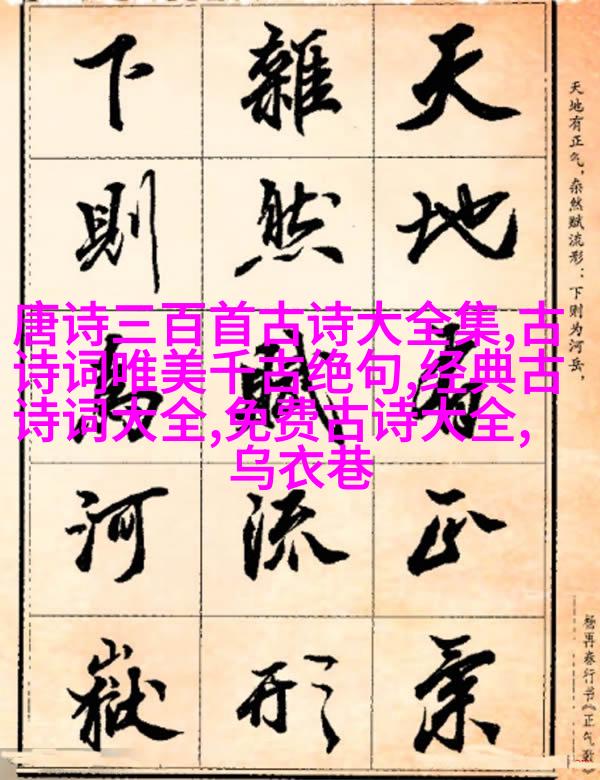 天地有正氣
雜然賦流形
下則為河嶽
天地有正气，杂然赋流形；下则为河岳，
杨再春行书《正气歌》
唐诗三百首古诗大全集,古
诗词唯美千古绝句,经典古
诗词大全,免费古诗大全,
乌衣巷